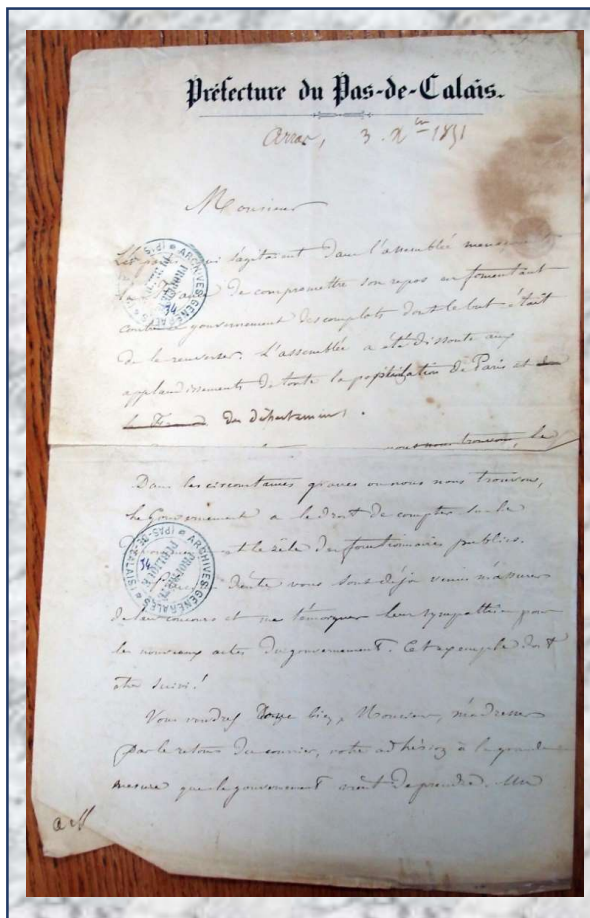 Préfecture du Pas-de-Calais.
Arras, 3. Xbre 1851
Monsieur
Les qui s'agitaient dans l'assemblée
de compromettre son repos en fomentant
contre gouvernement des complots dont le but était
de le renverser. L'assemblée a été dissoute aux
applaudissements de toute la population de Paris et de
la France des départements.
nous nous trouvons, le
Dans les circonstances graves où nous nous trouvons,
le Gouvernement a le droit de compter sur le
et le zèle des fonctionnaires publics.
vous sont déjà venus m'assurer
de leur concours et me témoigner leur sympathie pour
les nouveaux actes du gouvernement. Cet exemple doit
être suivi!
Vous voudrez bien, Monsieur, m'adresser
par le retour du courrier, votre adhésion à la grande
mesure que le gouvernement vient de prendre. Un
ARCHIVES GÉNÉRALES (PAS-DE-CALAIS)
34
ARCHIVES GÉNÉRALES (PAS-DE-CALAIS)
34